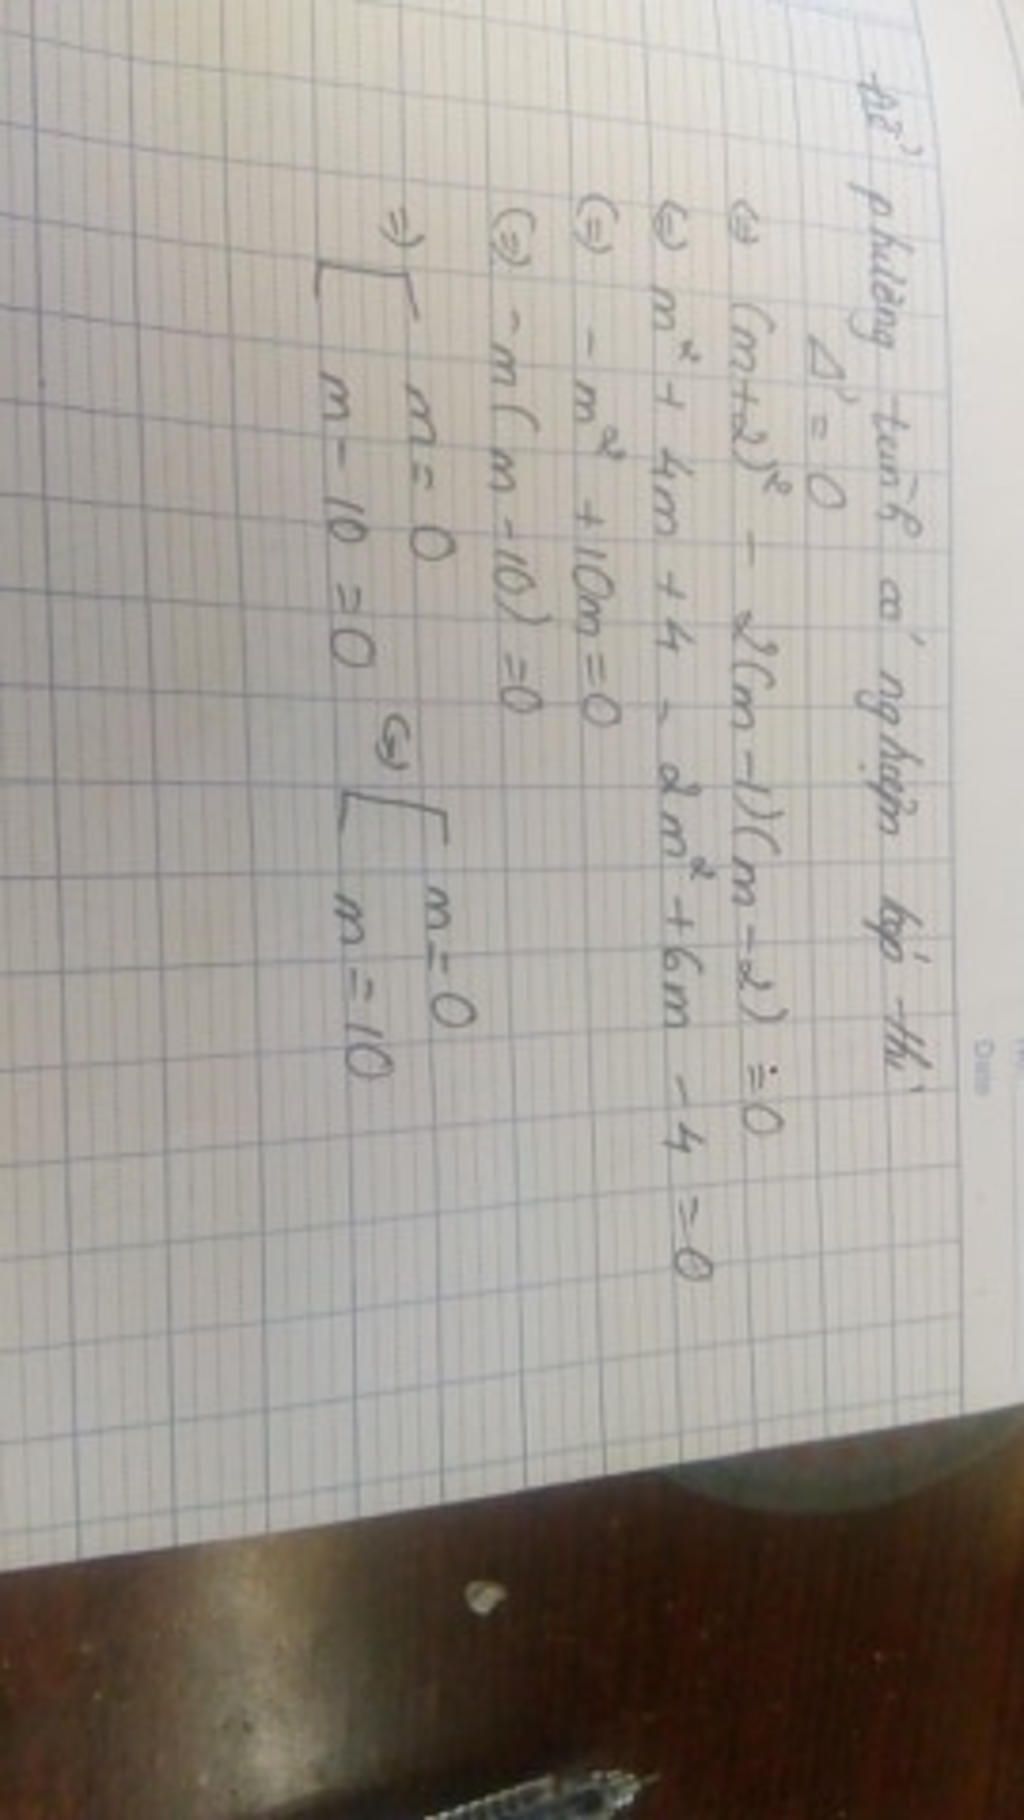 Để phương trình có nghiệm kép thì
Δ' = 0
(=) (m+2)² - 2(m-1)(m-2) = 0
(=) m² + 4m + 4 - 2m² + 6m - 4 = 0
(=) - m² + 10m = 0
(=) - m(m - 10) = 0
=) [ - m = 0 (=) [ m = 0
m - 10 = 0 m = 10
Date